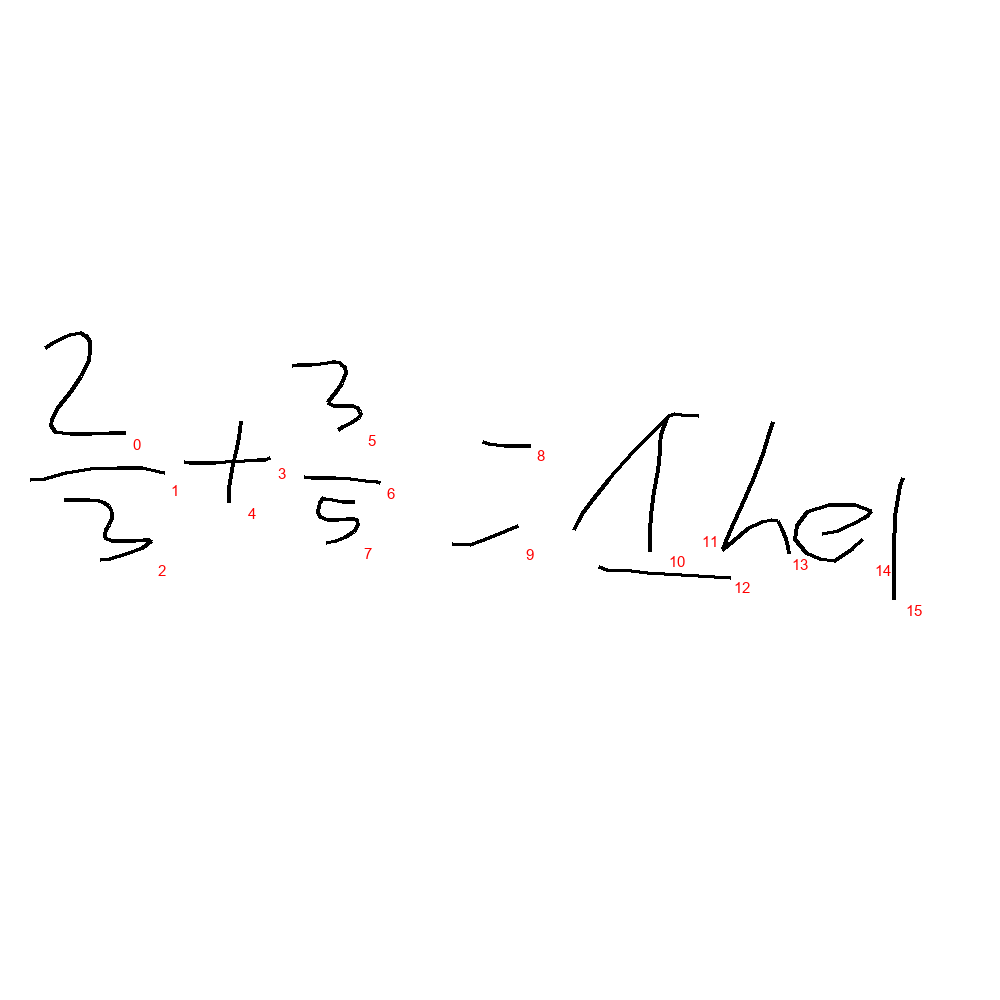 2/3 + 3/5 = 1 hel
0 1 2 3 4 5 6 7 8 9 10 11 12 13 14 15